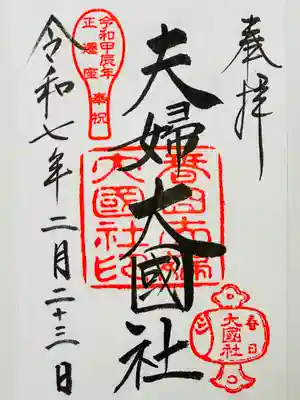 奉拝
夫婦大國社
春日夫婦
大國社印
春日
大國社
令和甲辰年
正遷座 奉祝
令和七年二月二十三日